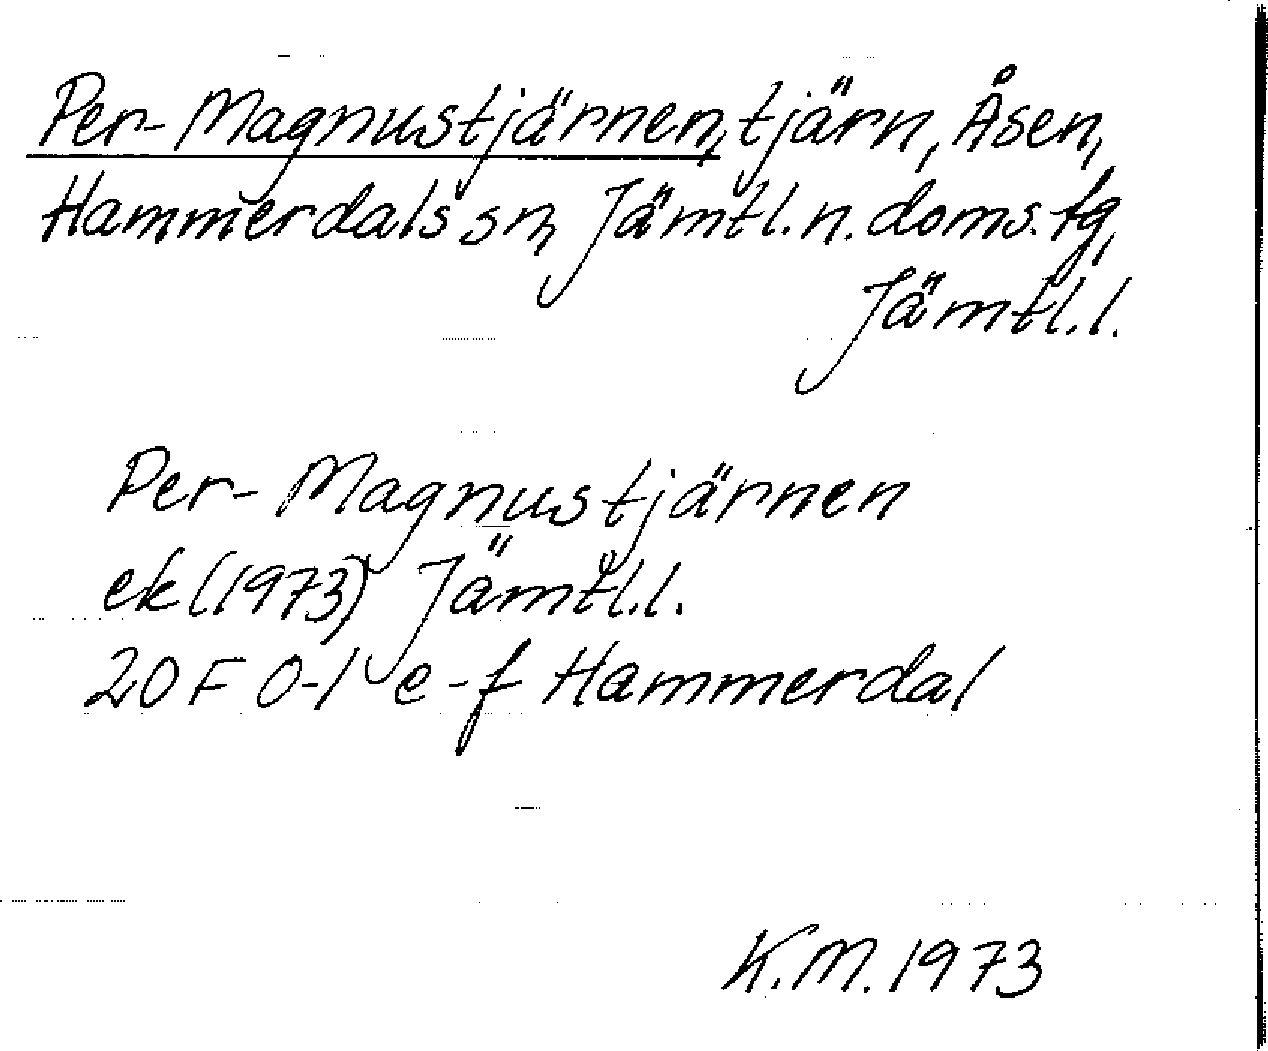 Per-Magnustjärnen, tjärn, Åsen,
Hammerdals sn, Jämtl. n. doms. tg,
Jämtl. l.
Per-Magnustjärnen
ek (1973) Jämtl. l.
20 F 0-1 e-f Hammerdal
K.M. 1973